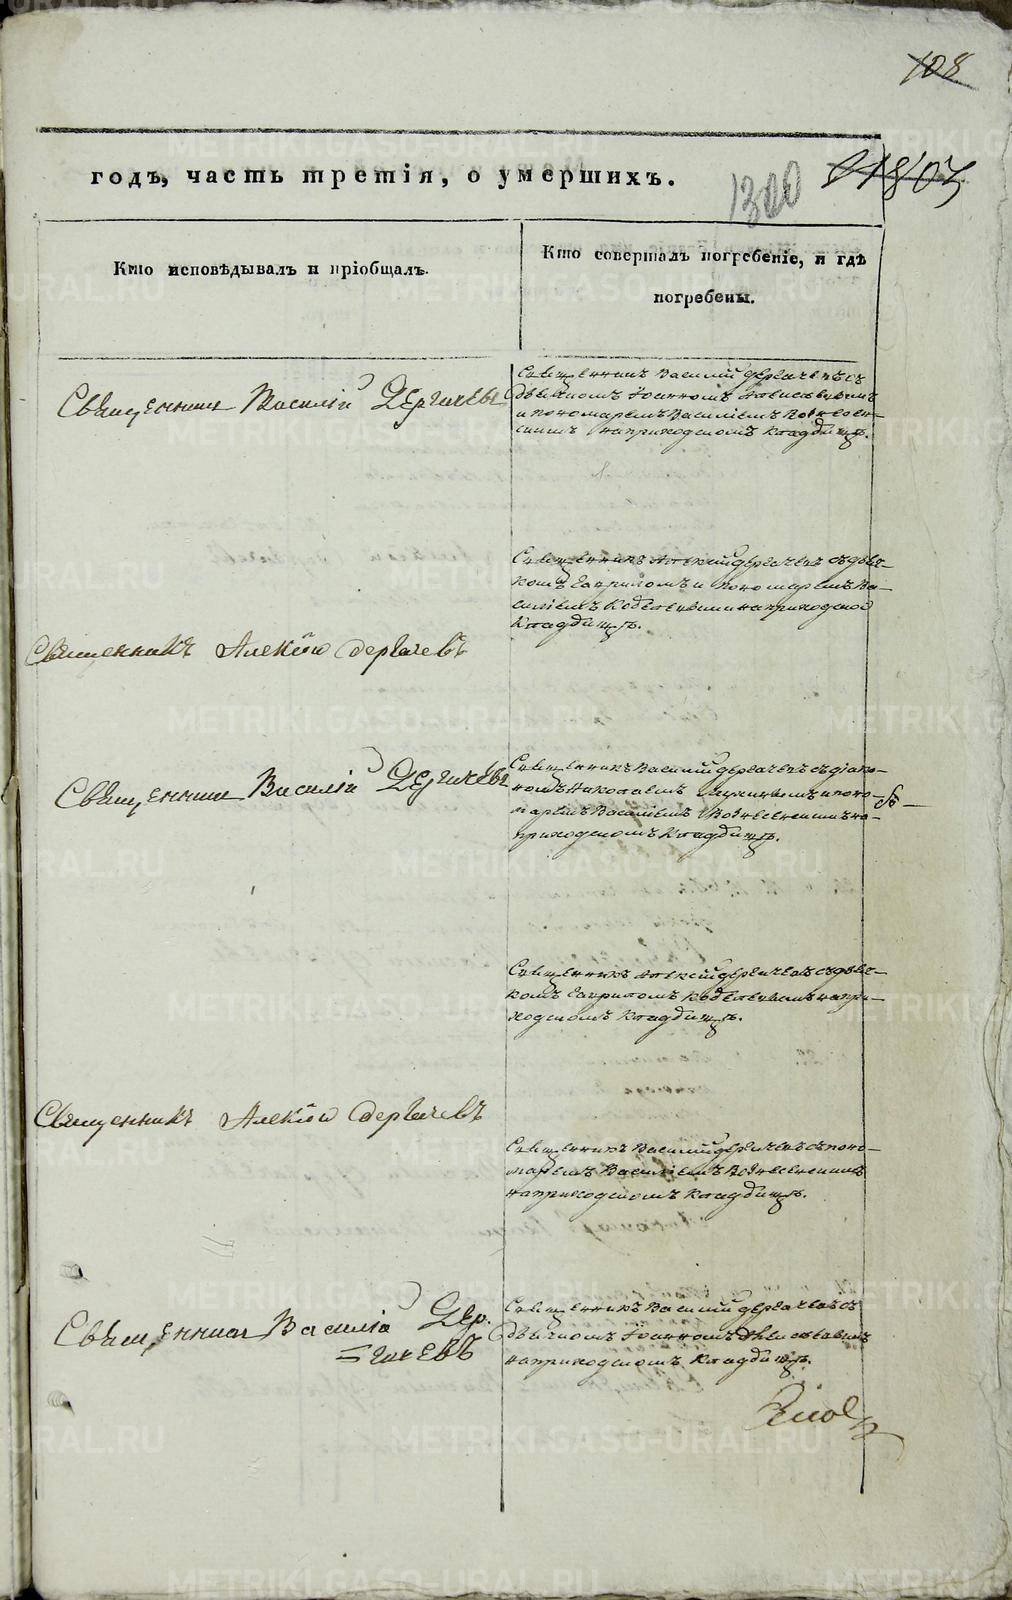 108
годъ, часть третія, о умершихъ.
1300
Кто исповѣдывалъ и пріобщалъ.
Кто совершалъ погребеніе, и гдѣ
погребены.
Священникъ Василій Дергачевъ
Священникъ Василій Дергачевъ съ
дьячкомъ Іоанномъ
и пономаремъ Василіемъ Вознесен-
скимъ на приходскомъ кладбищѣ.
Священникъ Алексій Дергачевъ съ дьяч-
комъ Гавриломъ и пономаремъ Ва-
силіемъ на приходском
кладбищѣ.
Священникъ Алексій Дергачевъ
Священникъ Василій Дергачевъ
Священникъ Василій Дергачевъ съ діако-
номъ Николаемъ и поно-
маремъ Василіемъ Вознесенскимъ на
приходскомъ кладбищѣ.
Священникъ Алексій Дергачевъ съ дьяч-
комъ Гавриломъ на при-
ходскомъ кладбищѣ.
Священникъ Алексій Дергачевъ
Священникъ Василій Дергачевъ съ поно-
маремъ Василіемъ Вознесенскимъ
на приходскомъ кладбищѣ.
Священникъ Василій Дер-
гачевъ
Священникъ Василій Дергачевъ съ
дьячкомъ Іоанномъ
на приходскомъ кладбищѣ.
METRIKI.GASO-URAL.RU